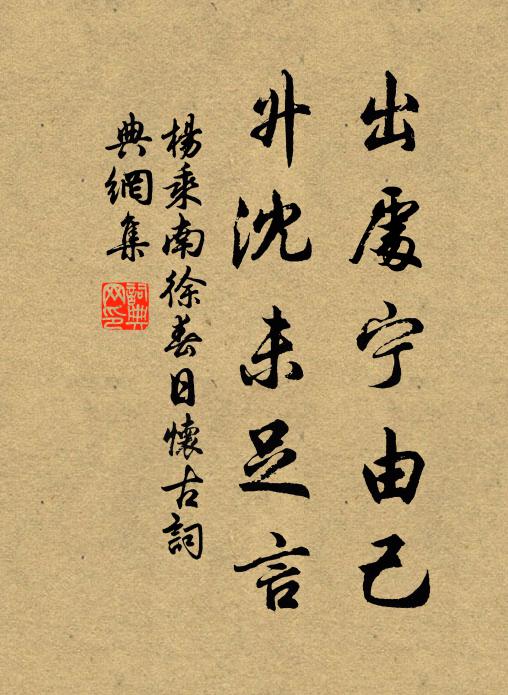 出處宁由己
升沈未足言
楊乘南徐春日懷古詞
典網集
詞典網印